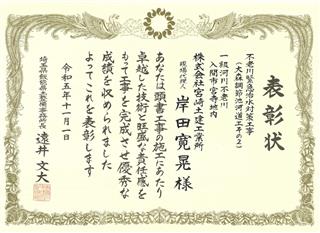 表彰状
不老川緊急治水対策工事
(大森調節池河道工その2)
一級河川不老川
入間市宮寺地内
株式会社宮崎土建工業所
現場代理人 岸田寛晃様
あなたは頭書工事の施工にあたり
卓越した技術と旺盛な責任感を
もって工事を完成させ優秀な
成績を収められました
よってこれを表彰します
令和五年十一月一日
埼玉県飯能県土整備事務所長 遠井文大